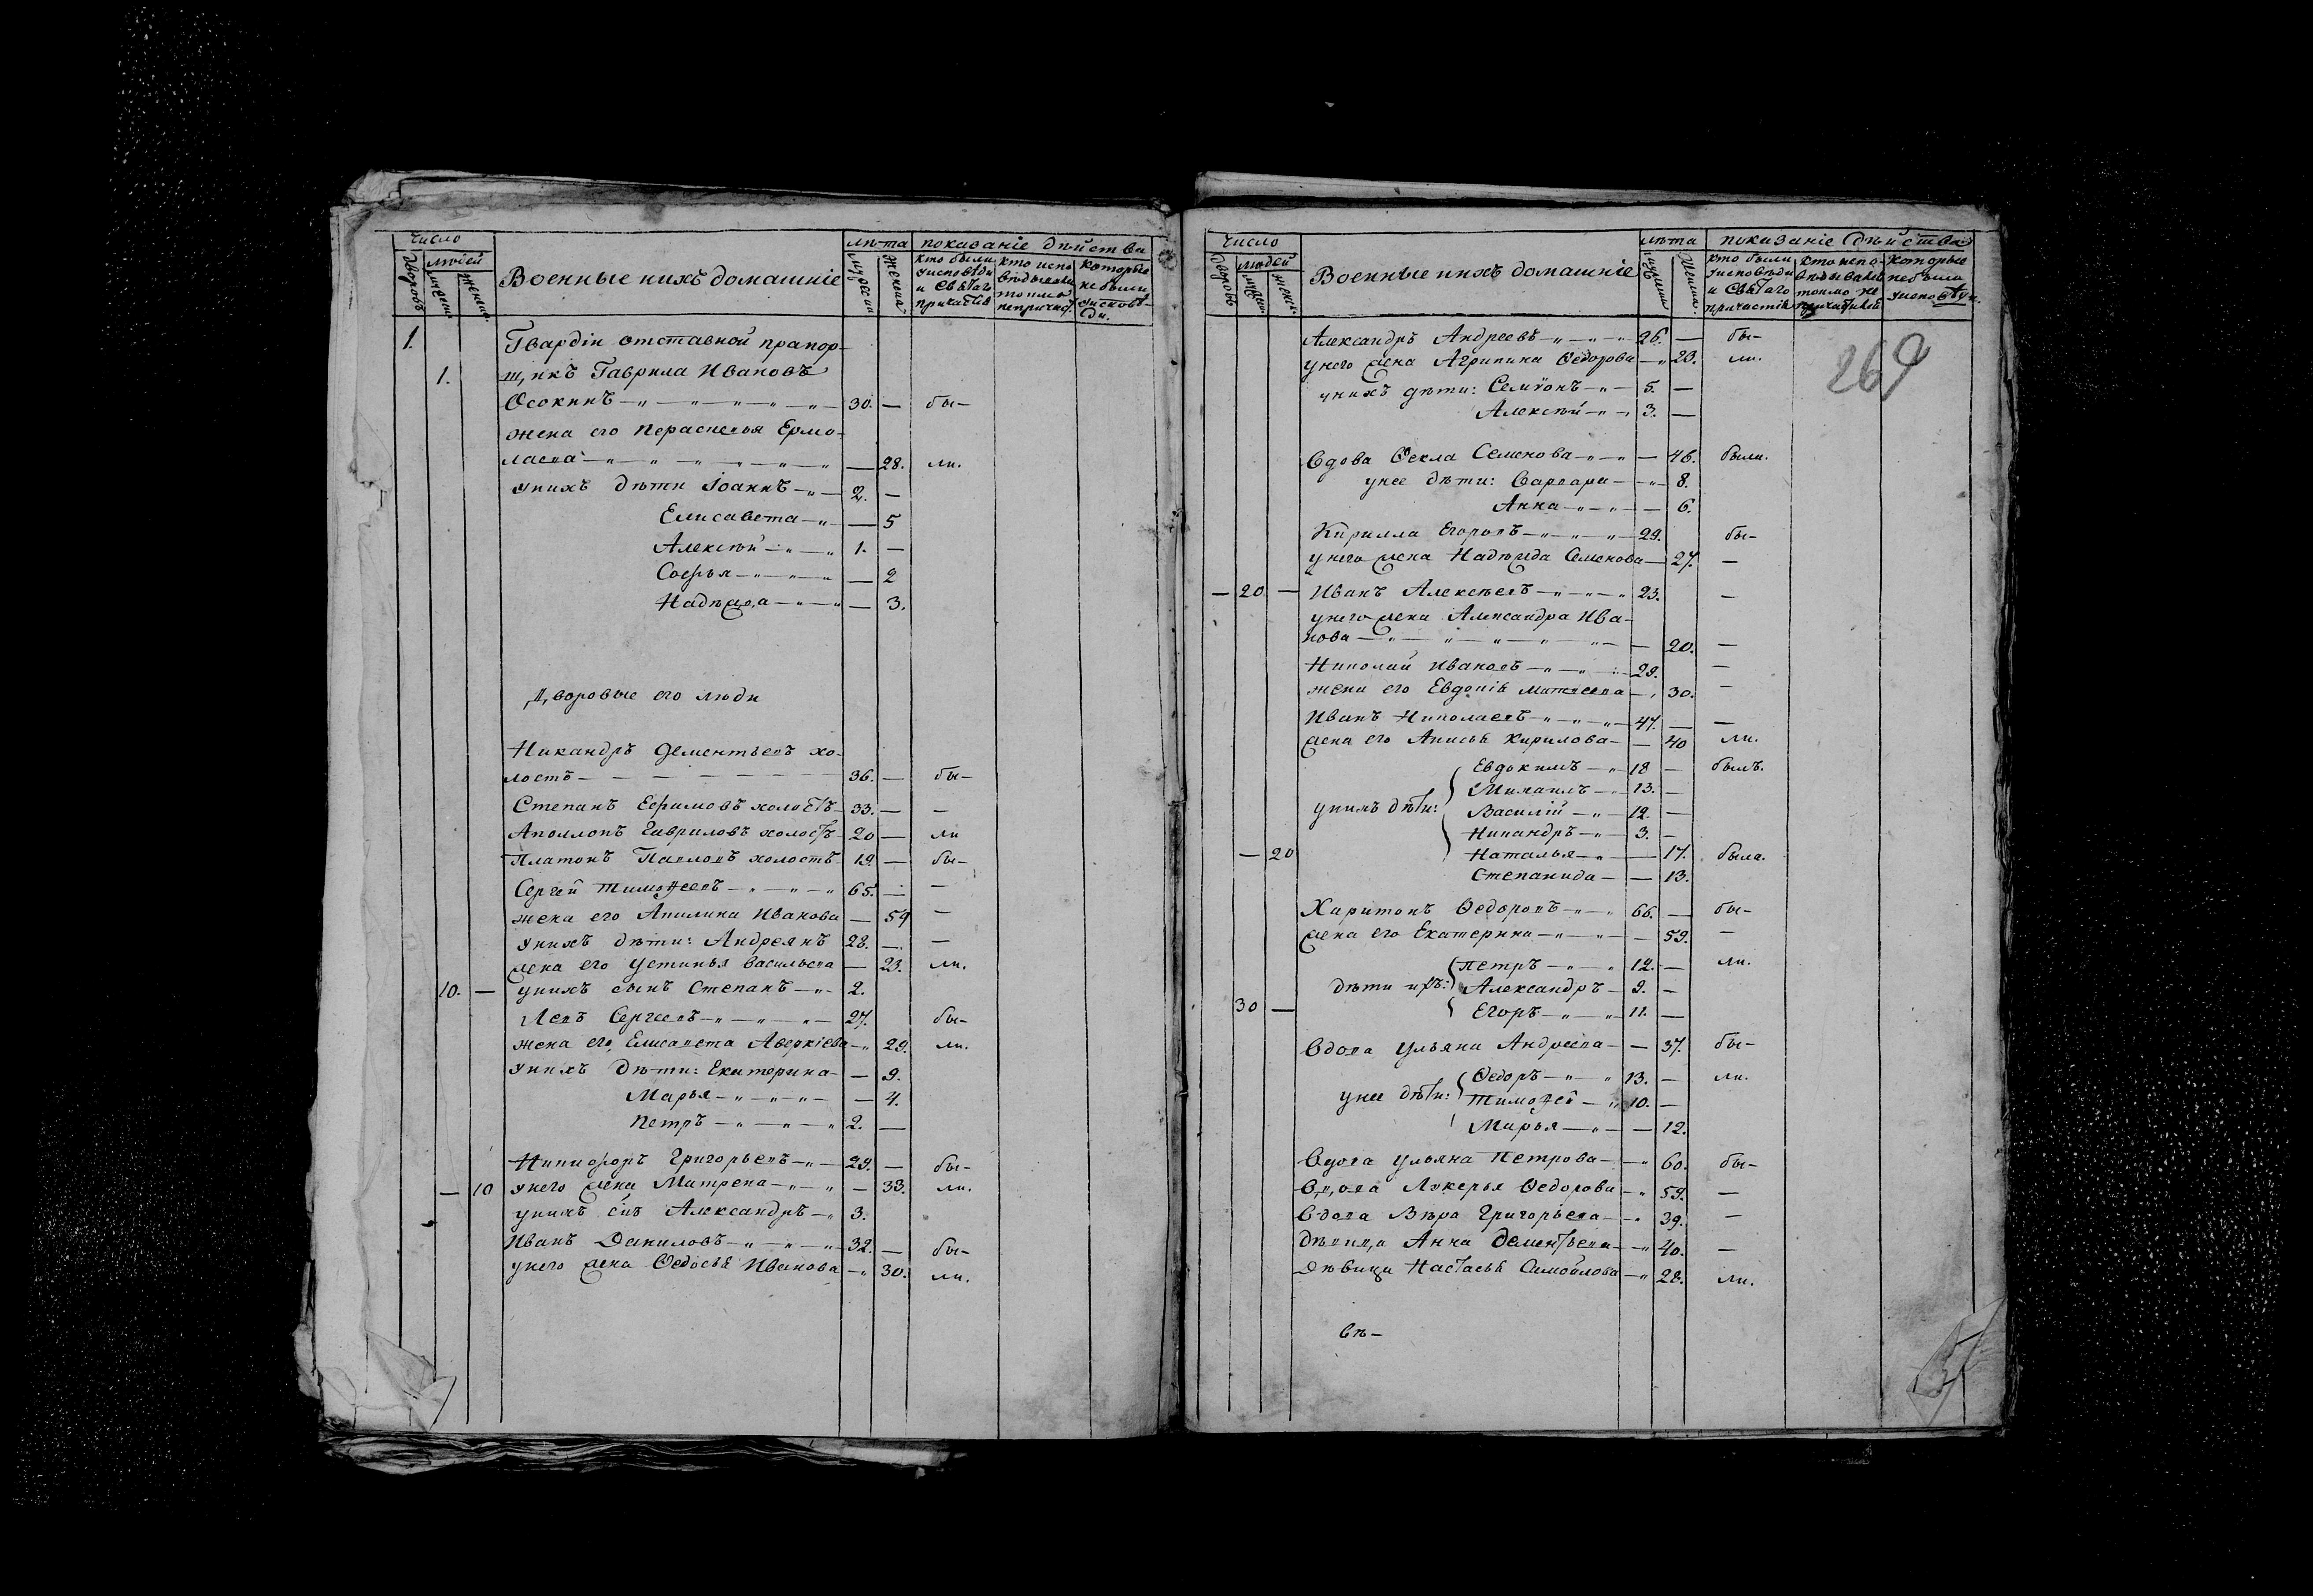 число
людей
Дворовъ
мужеск.
женск.
Военные и ихъ домашніе
лѣта
мужеска
женска
показаніе дѣйства
кто были у исповѣди и Святаго причастія
кто испо вѣдывались токмо не причащ.
которые не были у исповѣ- ди.
1. Гвардіи отставной прапор-
1. щикъ Гаврила Ивановъ
Осокинъ 30. — бы-
жена его Параскевья Ермо-
лаева — 28. ли.
у нихъ дѣти Іоаннъ 2. —
Елисавета — 5
Алексѣй 1. —
Софья — 2
Надежда — 3.
Дворовые его люди
Никандръ Дементьевъ хо-
лостъ 36. — бы-
Степанъ Ефимовъ холостъ 33. — —
Аполлонъ Гавриловъ холостъ 20 — ли
Платонъ Павловъ холостъ 19. — бы-
Сергей Тимофеевъ 65. — —
жена его Акилина Иванова — 59 —
у нихъ дѣти: Андреянъ 28. — —
жена его Устинья Васильева — 23. ли.
10. — у нихъ сынъ Степанъ 2.
Левъ Сергеевъ 27. бы-
жена его Елисавета Аверкіева 29. ли.
у нихъ дѣти: Екатерина — 9.
Марья — 4.
Петръ 2. —
Никифоръ Григорьевъ 29. — бы-
— 10 у него жена Матрена — 33. ли.
у нихъ сынъ Александръ 3.
Иванъ Даниловъ 32. — бы-
у него жена Ѳедосья Иванова 30. ли.
число
людей
Дворовъ
мужеск.
женск.
Военные и ихъ домашніе
лѣта
показаніе дѣйства
кто были у исповѣди и Святаго причастія
кто испо- вѣдывался токмо не
которые не были у исповѣди.
269
Александръ Андреевъ 26. — бы-
у него жена Агрипина Ѳедорова 23. ли.
у нихъ дѣти: Семіонъ 5. —
Алексѣй 3. —
Вдова Ѳекла Семенова — 46. были.
у нее дѣти: Варвара 8.
Анна — 6.
Кирилла Егоровъ 29. бы-
у него жена Надежда Семенова 27. —
— 20. — Иванъ Алексѣевъ 23. —
у него жена Александра Ива-
нова — 20. —
Николай Ивановъ 29. —
жена его Евдокія Матвеева 30. —
Иванъ Николаевъ 47. — —
жена его Анисья Кирилова — 40 ли.
Евдокимъ 18 — былъ.
Михаилъ 13. —
у нихъ дѣти: Василій 12. —
Никандръ 3. —
— 20 Наталья — 17. была.
Степанида — 13.
Харитонъ Ѳедоровъ 66. — бы-
жена его Екатерина — 59. —
Петръ 12. — ли.
дѣти ихъ: Александръ 9. —
30 — Егоръ 11. —
Вдова Ульяна Андреева — 37. бы-
Ѳедоръ 13. — ли.
у нее дѣти: Тимофей 10. —
Марья — 12.
Вдова Ульяна Петрова 60. бы-
Вдова Лукерья Ѳедорова 59. —
Вдова Вѣра Григорьева 39. —
Дѣвица Анна Дементьева 40. —
Дѣвица Настасья Самойлова 28. ли.
вѣ-